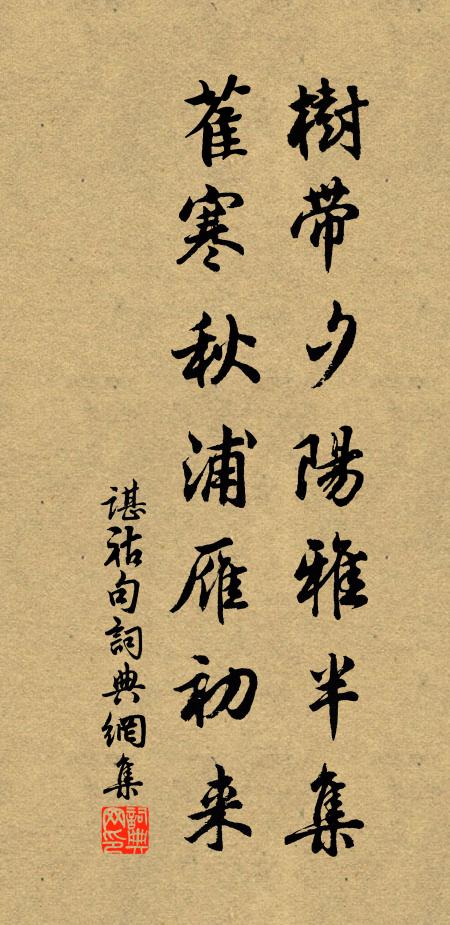 樹帶夕陽雅半集
萑寒秋浦雁初来
谌祜句詞典網集
詞典网印